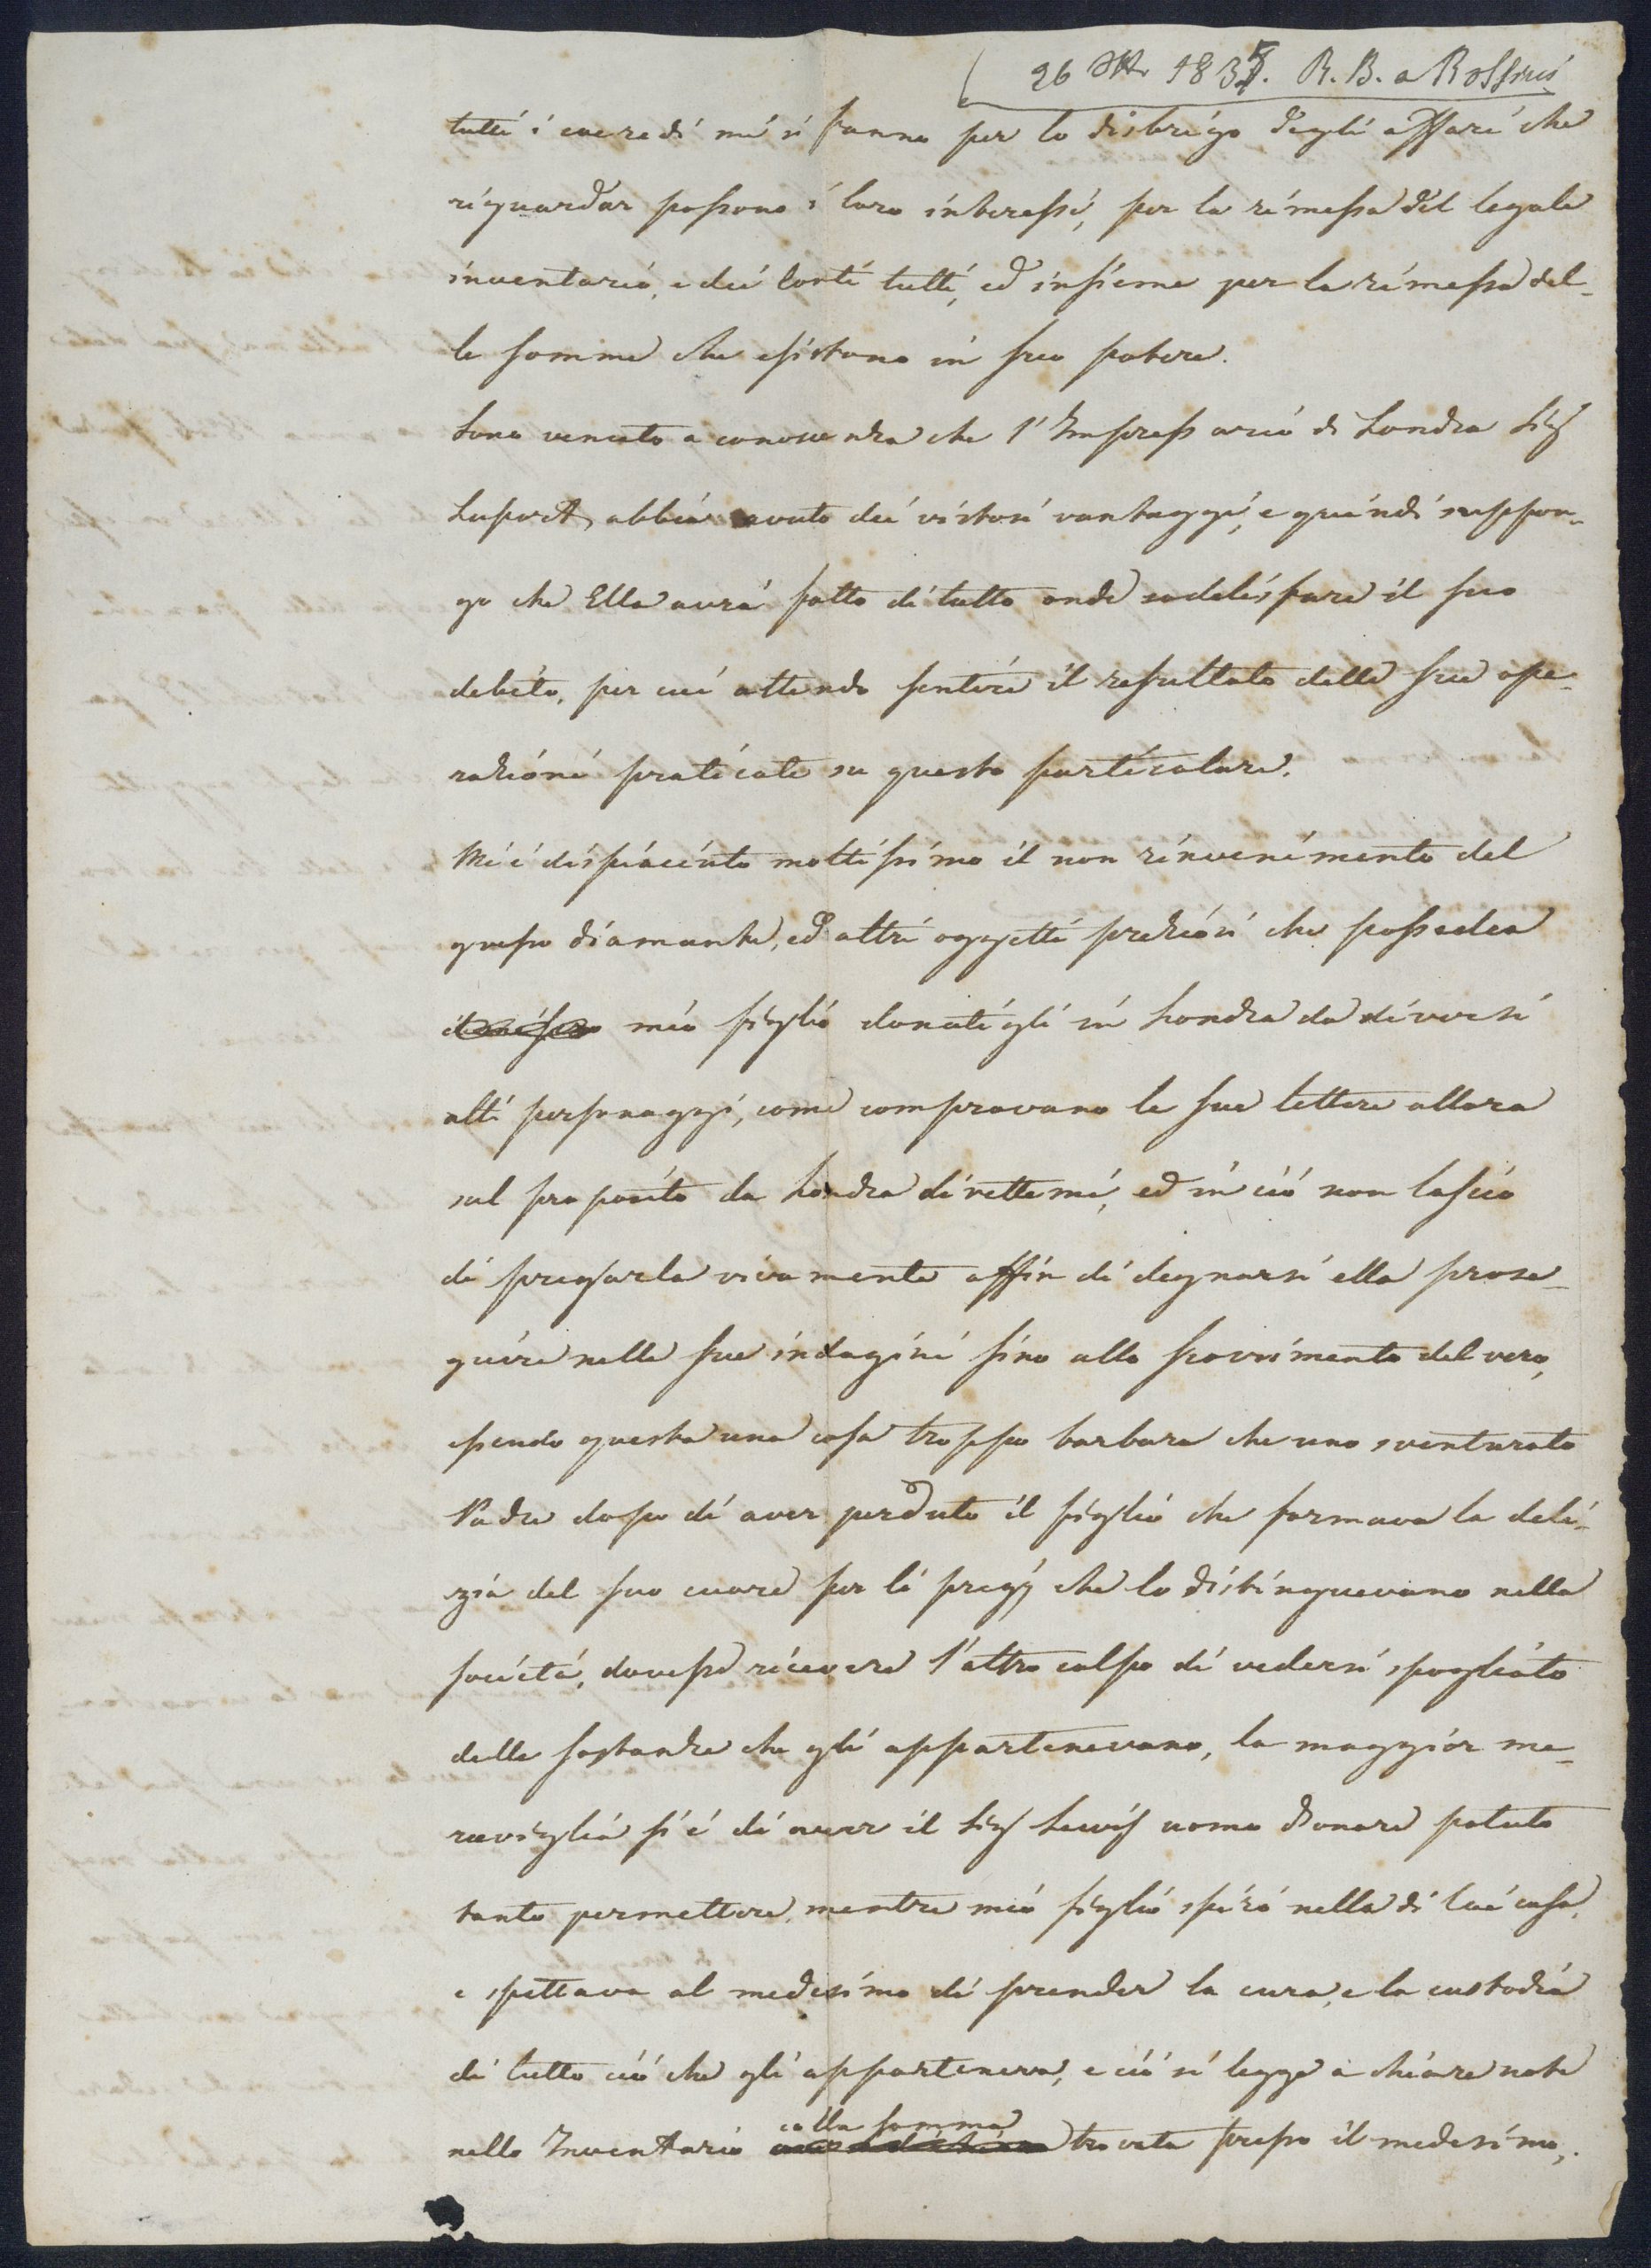 26 Ott. 1835. R. B. a Rossini
tutti i coeredi mi si fanno per lo disbrigo degli affari che
riguardar possono i loro interessi, per la rimessa del legale
inventario, e dei conti tutti, ed insieme per la rimessa del-
le somme che esistono in suo potere.
Sono venuto a conoscenza che l'Impressario di Londra Sig
Laport, abbia avuto dei vistosi vantaggi, e quindi suppon-
go che Ella avrà fatto di tutto onde sodelisfare il suo
debito, per cui attendo sentire il resultato delle sue ope-
razioni praticate su questo particolare.
Mi è dispiaciuto moltissimo il non rinvenimento del
grosso diamante, ed altri oggetti preziosi che possedea
mio figlio donatigli in Londra da diversi
alti personaggi, come comprovano le sue lettere allora
sul proposito da Londra direttemi, ed in ciò non lascio
di pregarla vivamente affin di degnarsi ella prose-
guire nelle sue indagini sino allo scovrimento del vero,
essendo questa una cosa troppo barbara che uno sventurato
Padre dopo di aver perduto il figlio che formava la deli-
zia del suo cuore per li pregj che lo distinguevano nella
società, dovesse ricevere l'altro colpo di vedersi spogliato
delle sostanze che gli appartenevano, la maggior me-
raviglia si è di aver il Sig Lewis uomo d'onore potuto
tanto permettere, mentre mio figlio spirò nella di lui casa,
e spettava al medesimo di prender la cura, e la custodia
di tutto ciò che gli apparteneva, e ciò si legge a chiare note
nello Inventario colla somma trovata presso il medesimo,